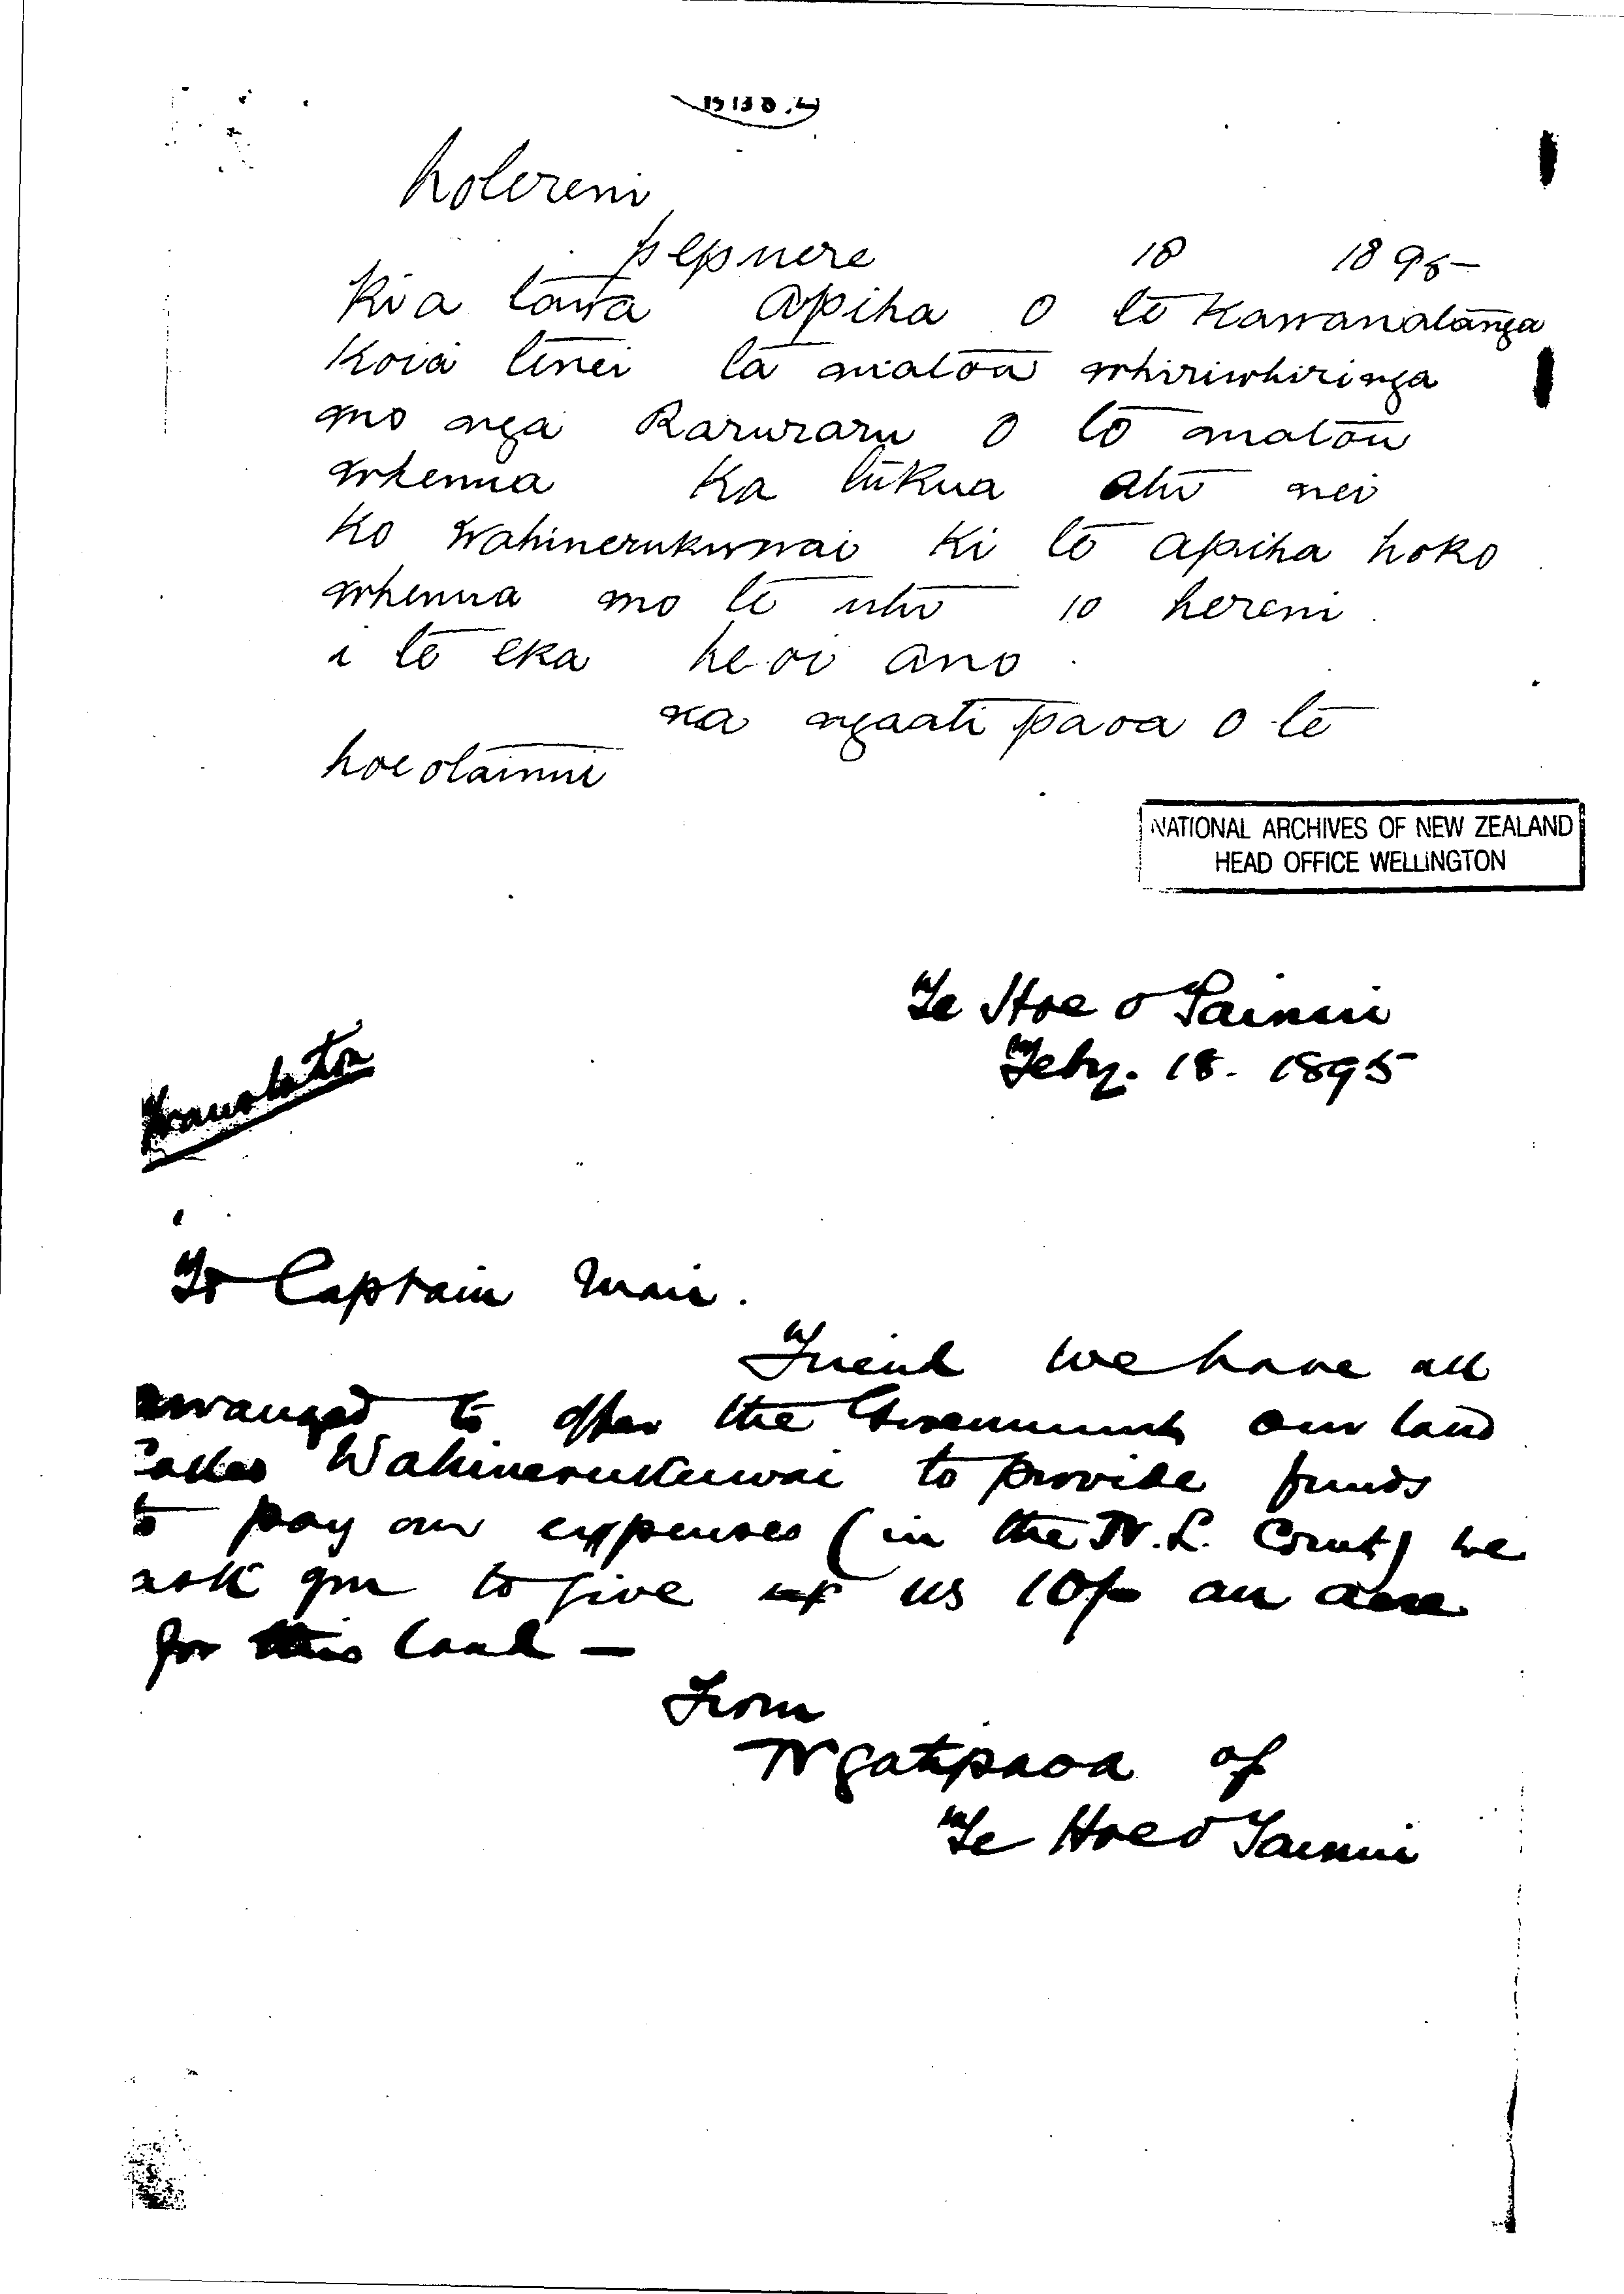 hotereni
pepuere 18 1895
Kia tawa apiha o te Kawanatanga
Koia tenei ta matou whiriwhiringa
mo nga Raruraru o to matou
whenua Ka tukua atu nei
Ko Wahinerukuwai Ki te apiha hoko
whenua mo te utu 10 hereni
i te eka heoi ano
na ngaati paoa o te
hoe otainui
NATIONAL ARCHIVES OF NEW ZEALAND
HEAD OFFICE WELLINGTON
Te Hoe o Tainui
Feby. 18. 1895
Translation
To Captain Mair.
Friend We have all
arranged to offer the Government our land
called Wahinerukuwai to provide funds
to pay our expenses (in the N.L. Court) we
ask you to give us 10/- an acre
for this land —
From
Ngatipaoa of
Te Hoe o Tainui